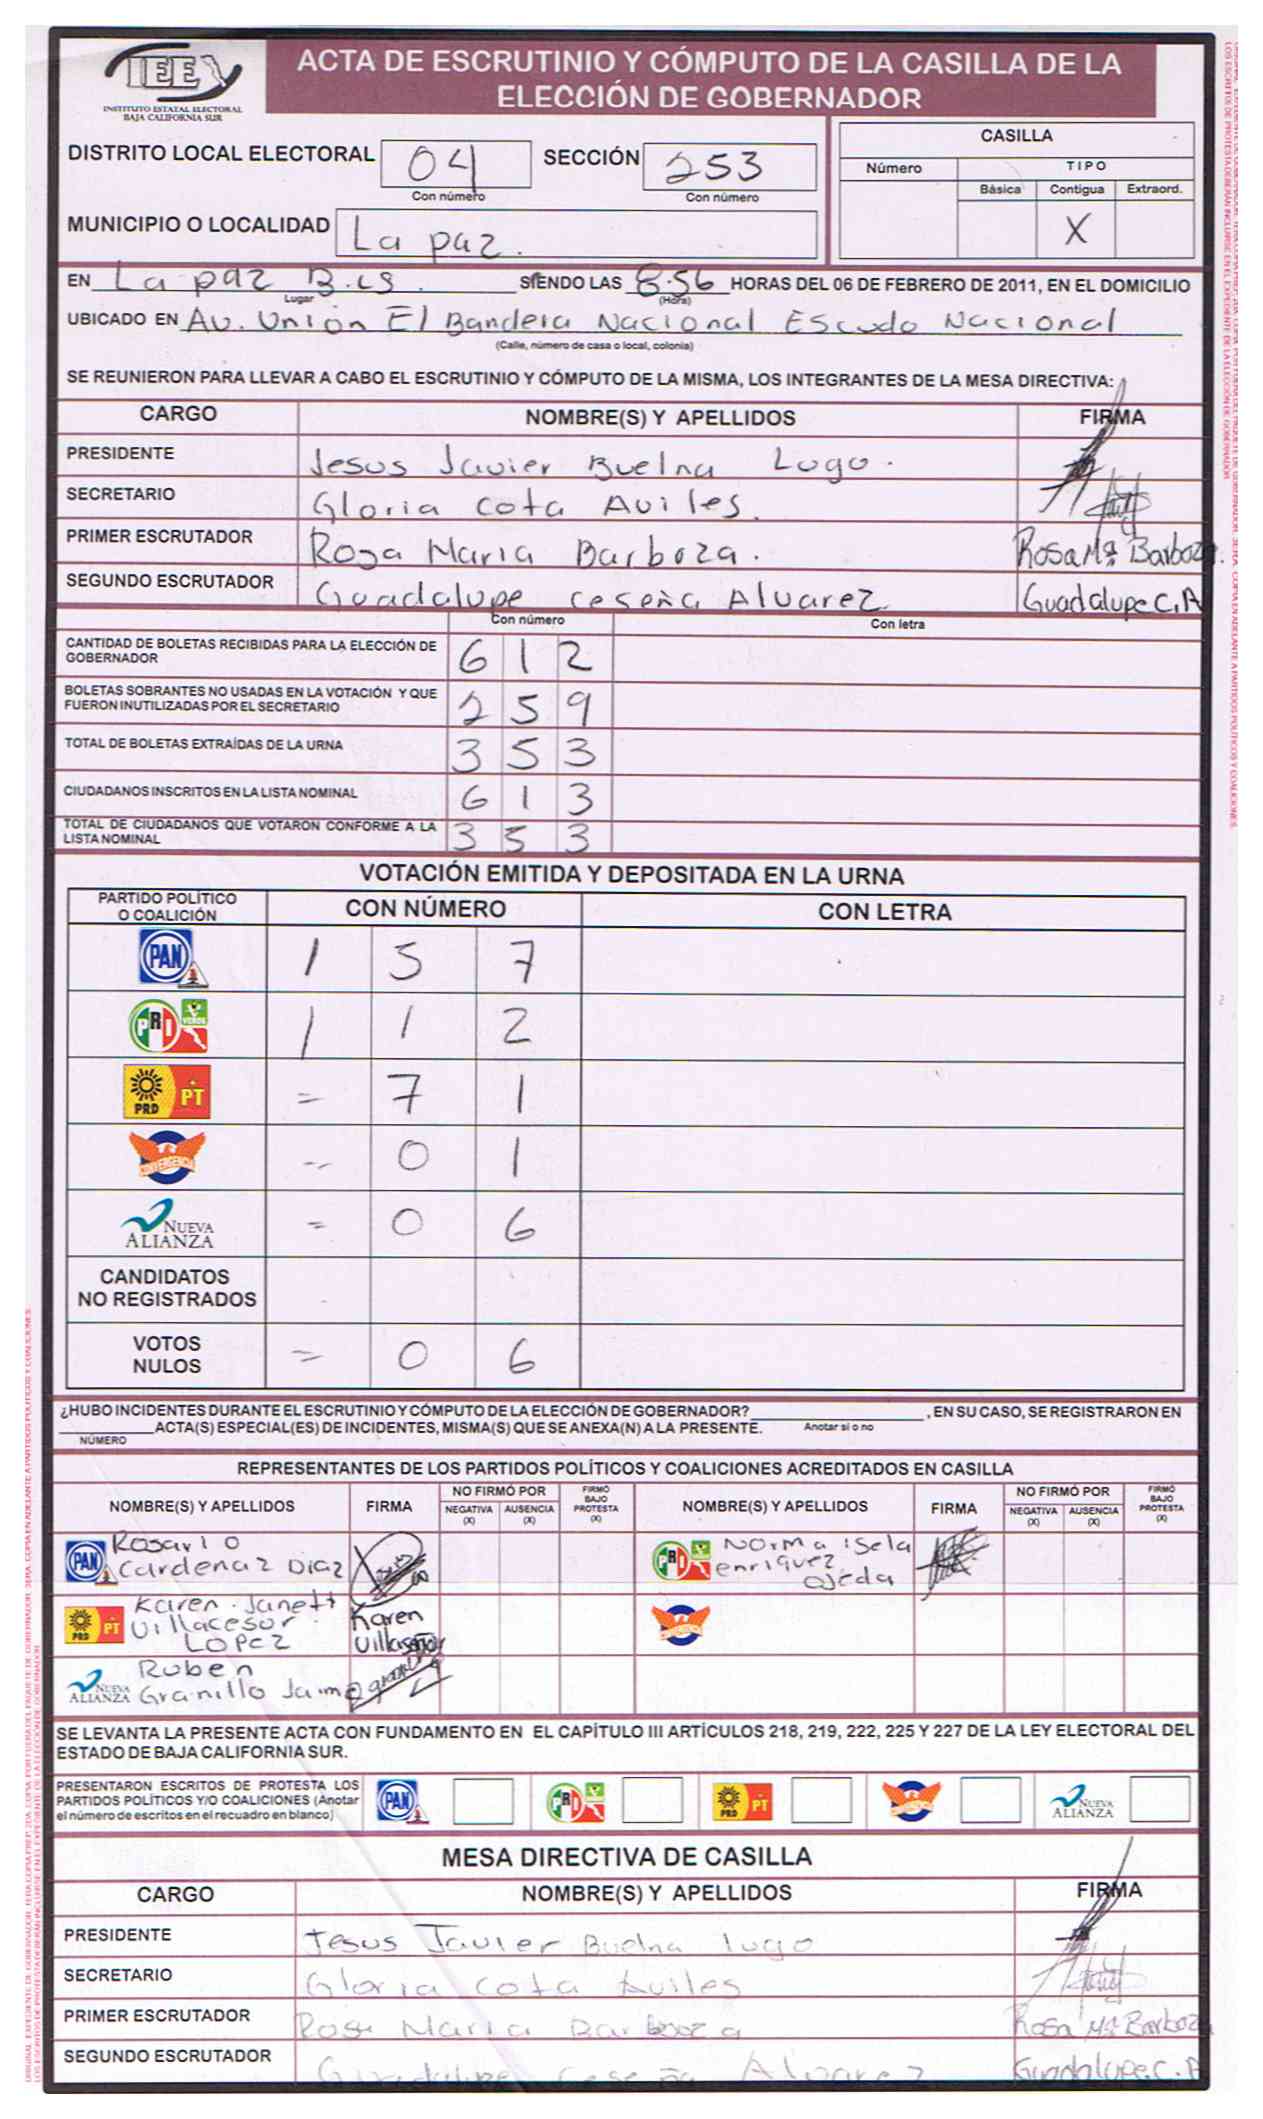 IEE
INSTITUTO ESTATAL ELECTORAL
BAJA CALIFORNIA SUR
ACTA DE ESCRUTINIO Y CÓMPUTO DE LA CASILLA DE LA
ELECCIÓN DE GOBERNADOR
DISTRITO LOCAL ELECTORAL 04 SECCIÓN 253
Con número Con número
CASILLA
Número TIPO
Básica Contigua Extraord.
X
MUNICIPIO O LOCALIDAD La paz.
EN La paz B.cs. SIENDO LAS 8:56 HORAS DEL 06 DE FEBRERO DE 2011, EN EL DOMICILIO
Lugar (Hora)
UBICADO EN Av. Unión El Bandera Nacional Escudo Nacional
(Calle, número de casa o local, colonia)
SE REUNIERON PARA LLEVAR A CABO EL ESCRUTINIO Y CÓMPUTO DE LA MISMA, LOS INTEGRANTES DE LA MESA DIRECTIVA:
CARGO NOMBRE(S) Y APELLIDOS FIRMA
PRESIDENTE Jesus Javier Buelna Lugo.
SECRETARIO Gloria Cota Aviles.
PRIMER ESCRUTADOR Rosa Maria Barboza. Rosa Mª Barboza.
SEGUNDO ESCRUTADOR Guadalupe ceseña Alvarez Guadalupe C. A
Con número Con letra
CANTIDAD DE BOLETAS RECIBIDAS PARA LA ELECCIÓN DE
GOBERNADOR 6 1 2
BOLETAS SOBRANTES NO USADAS EN LA VOTACIÓN Y QUE
FUERON INUTILIZADAS POR EL SECRETARIO 2 5 9
TOTAL DE BOLETAS EXTRAÍDAS DE LA URNA 3 5 3
CIUDADANOS INSCRITOS EN LA LISTA NOMINAL 6 1 3
TOTAL DE CIUDADANOS QUE VOTARON CONFORME A LA
LISTA NOMINAL 3 5 3
VOTACIÓN EMITIDA Y DEPOSITADA EN LA URNA
PARTIDO POLÍTICO
O COALICIÓN CON NÚMERO CON LETRA
PAN 1 5 7
PRI VERDE 1 1 2
PRD PT = 7 1
CONVERGENCIA -- 0 1
NUEVA
ALIANZA = 0 6
CANDIDATOS
NO REGISTRADOS
VOTOS
NULOS = 0 6
¿HUBO INCIDENTES DURANTE EL ESCRUTINIO Y CÓMPUTO DE LA ELECCIÓN DE GOBERNADOR? , EN SU CASO, SE REGISTRARON EN
ACTA(S) ESPECIAL(ES) DE INCIDENTES, MISMA(S) QUE SE ANEXA(N) A LA PRESENTE. Anotar si o no
NÚMERO
REPRESENTANTES DE LOS PARTIDOS POLÍTICOS Y COALICIONES ACREDITADOS EN CASILLA
NOMBRE(S) Y APELLIDOS FIRMA NO FIRMÓ POR NEGATIVA (X) AUSENCIA (X) FIRMÓ BAJO PROTESTA (X) NOMBRE(S) Y APELLIDOS FIRMA NO FIRMÓ POR NEGATIVA (X) AUSENCIA (X) FIRMÓ BAJO PROTESTA (X)
PAN Rosario
Cardenaz Diaz
PRI Norma isela
enriquez
ojeda
PRD PT Karen Janett
Villacesor
LOPEZ
Karen
Villaseñor
NUEVA
ALIANZA Ruben
Granillo Jaime
SE LEVANTA LA PRESENTE ACTA CON FUNDAMENTO EN EL CAPÍTULO III ARTÍCULOS 218, 219, 222, 225 Y 227 DE LA LEY ELECTORAL DEL
ESTADO DE BAJA CALIFORNIA SUR.
PRESENTARON ESCRITOS DE PROTESTA LOS
PARTIDOS POLÍTICOS Y/O COALICIONES (Anotar
el número de escritos en el recuadro en blanco)
PAN PRI PRD PT NUEVA ALIANZA
MESA DIRECTIVA DE CASILLA
CARGO NOMBRE(S) Y APELLIDOS FIRMA
PRESIDENTE Jesus Javier Buelna lugo
SECRETARIO Gloria Cota Aviles
PRIMER ESCRUTADOR Rosa Maria Barboza Rosa Mª Barboza
SEGUNDO ESCRUTADOR Guadalupe Ceseña Alvarez Guadalupe C. A